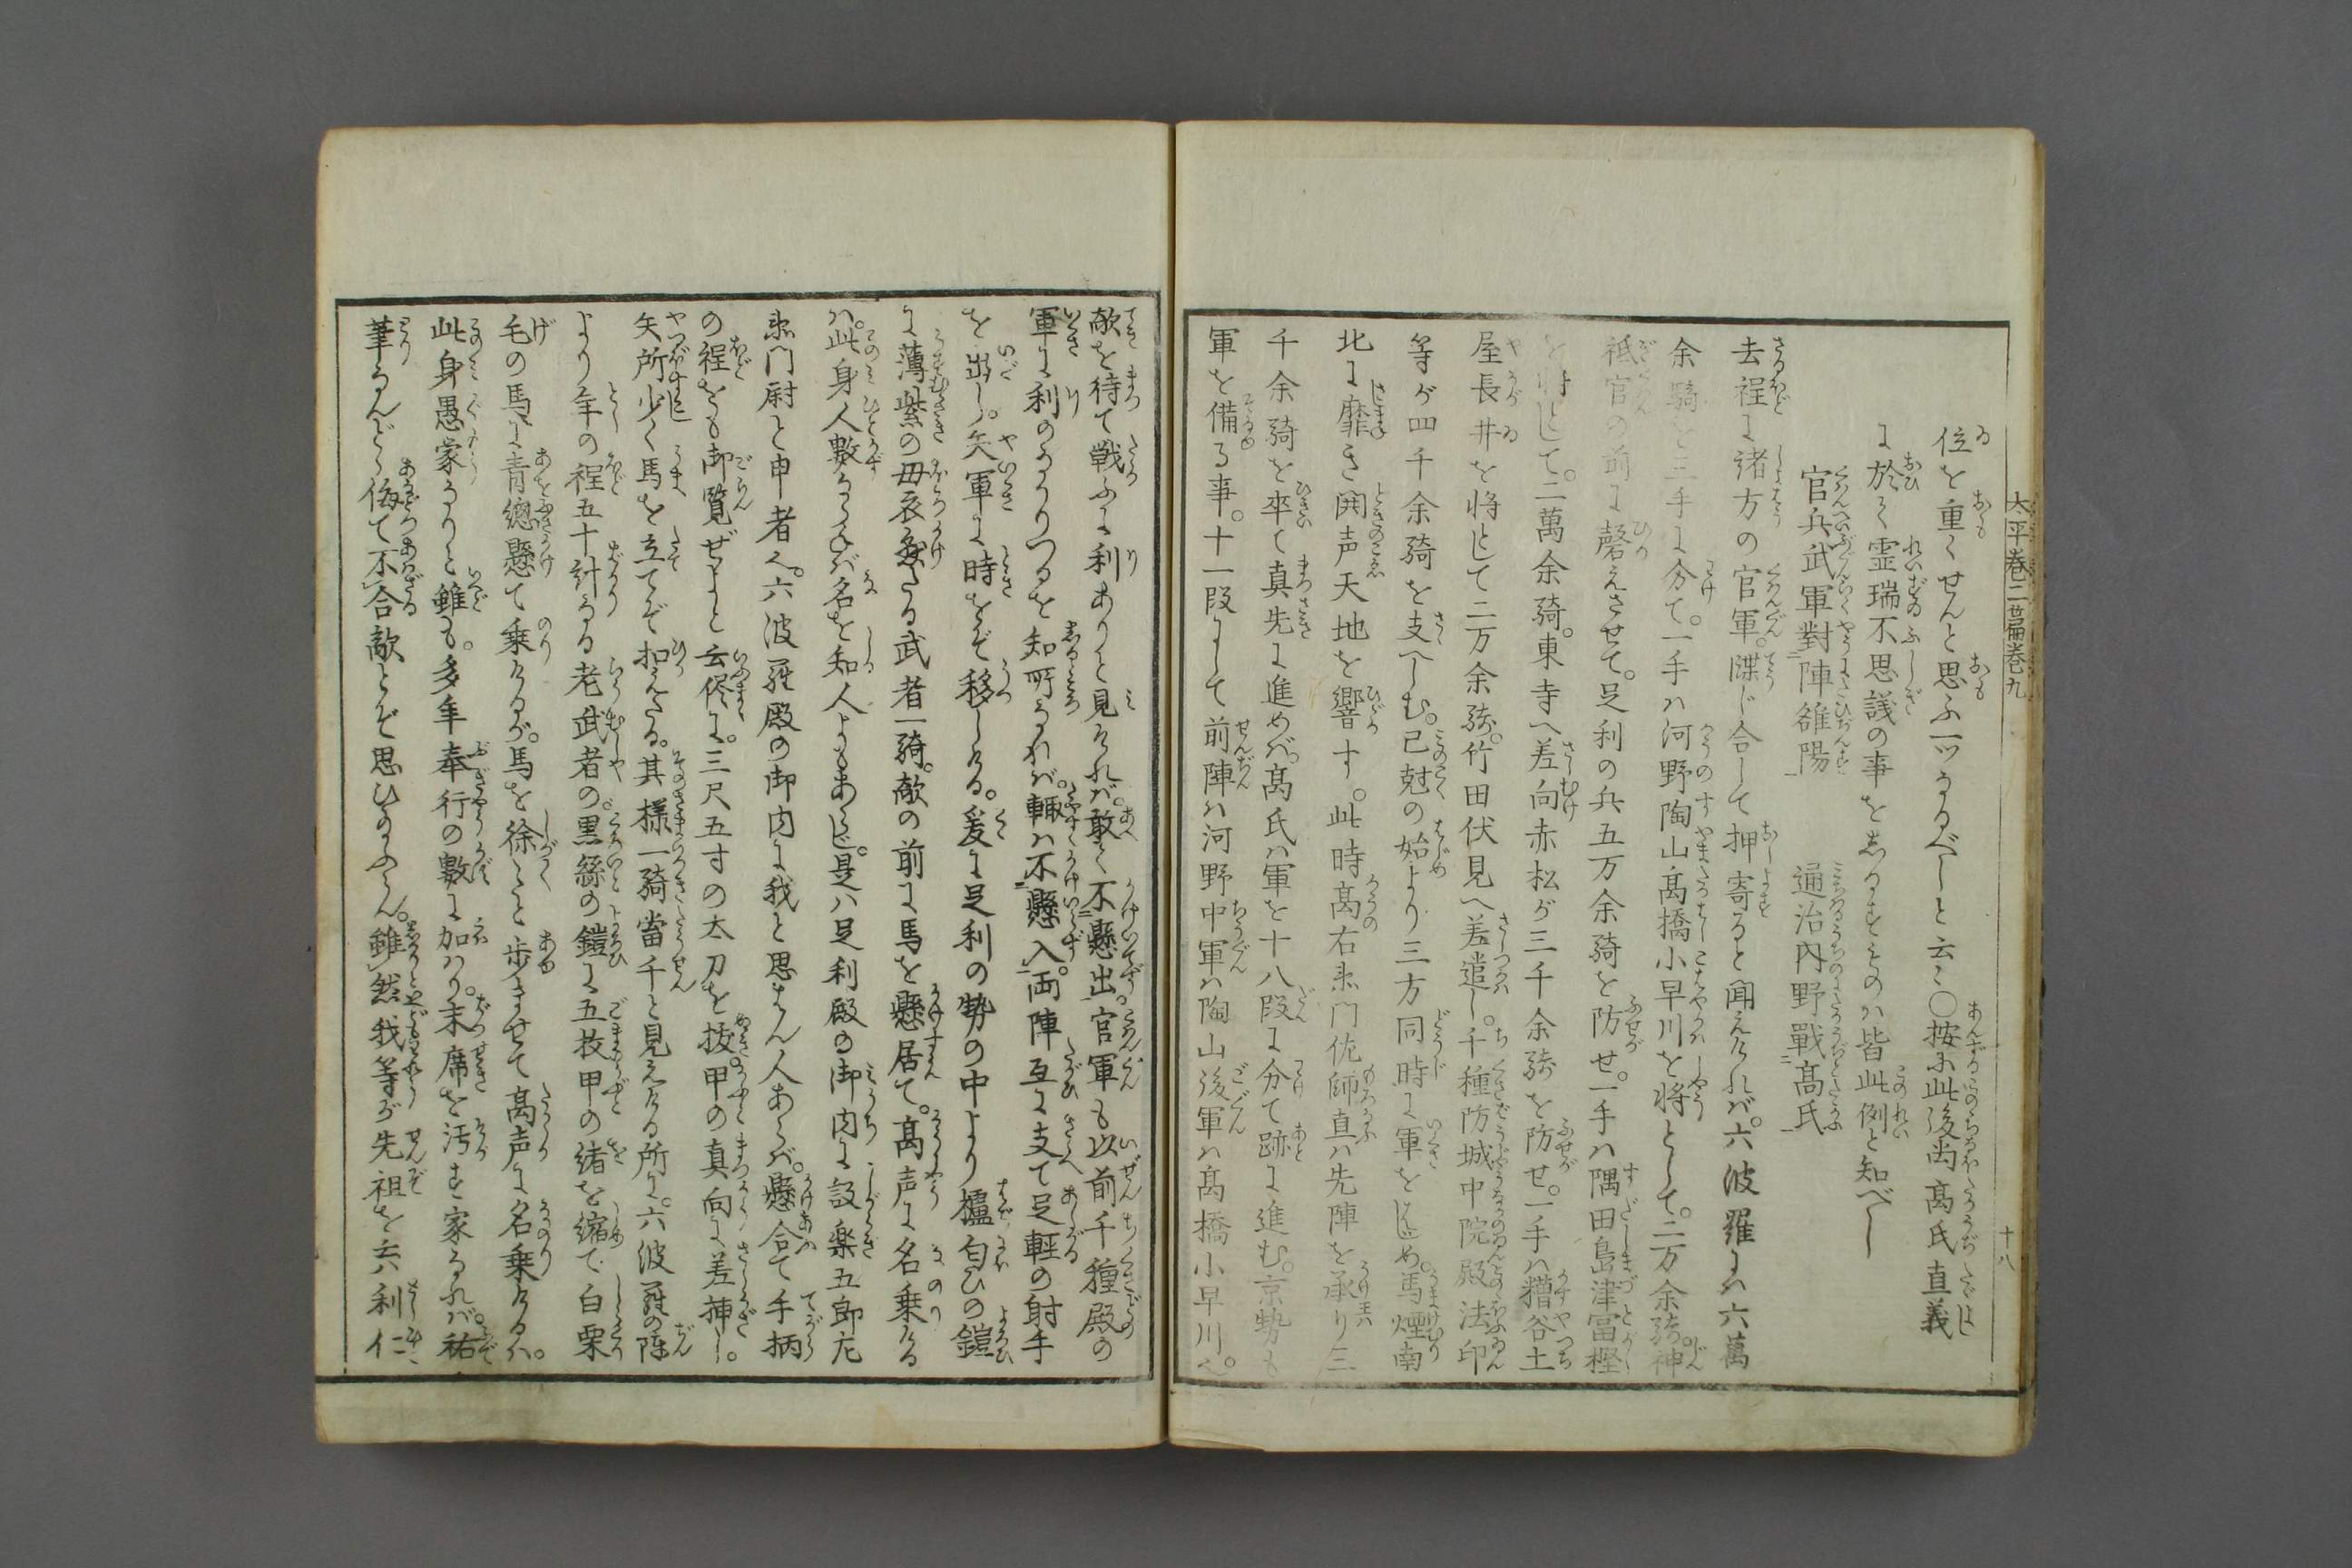 太平巻二篇巻九
十八
位を重くせんと思ふ一ツなるべしと云々〇按に此後尚高氏直義
に於て霊瑞不思議の事をしるすものハ皆此例と知べし
官兵武軍對陣雒陽　通治内野戰高氏
去程に諸方の官軍。牒じ合して押寄ると聞えけれバ。六波羅にハ六萬
余騎を三手に分て。一手ハ河野陶山高橋小早川を将として。二万余騎神
祇官の前に磬えさせて。足利の兵五万余騎を防せ。一手ハ隅田島津冨樫
を将として。二萬余騎。東寺へ差向赤松が三千余騎を防せ。一手ハ糟谷土
屋長井を将として二万余騎。竹田伏見へ差遣し。千種防城中院殿法印
等が四千余騎を支へしむ。己尅の始より三方同時に軍をはじめ。馬煙南
北に靡き閧声天地を響す。此時高右衛門佐師直ハ先陣を承り三
千余騎を卒て真先に進めバ。高氏ハ軍を十八段に分て跡に進む。京勢も
軍を備る事。十一段にして前陣ハ河野中軍ハ陶山後軍ハ高橋小早川也。
敵を待て戦ふに利ありと見えけれバ。敢て不懸出。官軍も以前千種殿の
軍に利のなかりつるを知所なれバ。輙ハ不懸入。両陣互に支て足軽の射手
を出し。矢軍に時をぞ移しける。爰に足利の勢の中より櫨匂ひの鎧
に薄紫の毋衣懸たる武者一騎。敵の前に馬を懸居て。高声に名乗ける
ハ。此身人數ならねバ名を知人よもあらじ。是ハ足利殿の御内に設楽五郎左
衛門尉と申者也。六波羅殿の御内に我と思はん人あらバ。懸合て手柄
の程をも御覧ぜよと云侭に。三尺五寸の太刀を抜甲の真向に差挿し。
矢所少く馬を立てぞ扣えたる。其様一騎當千と見えける所に。六波羅の陣
より年の程五十計なる老武者の。黒絲の鎧に五枚甲の緒を縮て白栗
毛の馬に青總懸て乗けるが。馬を徐々と歩ませて高声に名乗けるハ。
此身愚家なりと雖も。多年奉行の數に加ハり。末席を汚す家なれバ。祐
筆なんどゝ侮て不合敵とぞ思ひ給ふらん。雖然我等が先祖を云ハ利仁